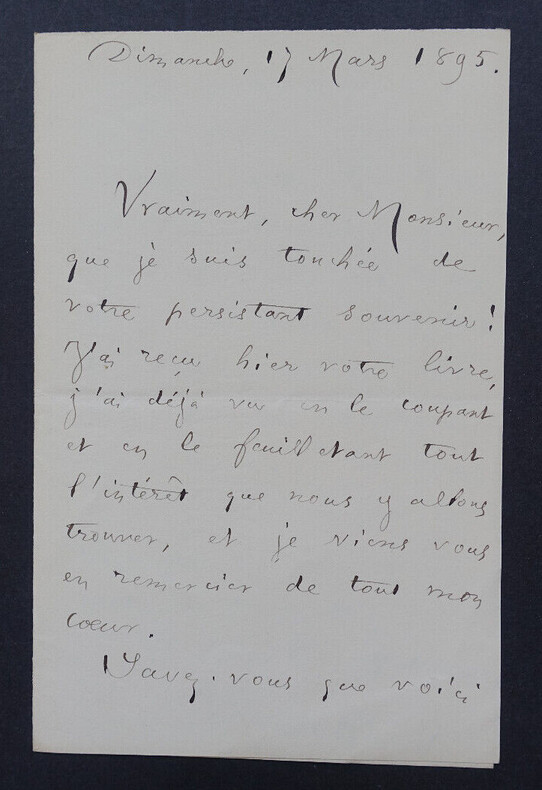 Dimanche, 17 Mars 1895.
Vraiment, cher Monsieur,
que je suis touchée de
votre persistant souvenir!
J'ai reçu hier votre livre,
j'ai déjà vu en le coupant
et en le feuilletant tout
l'intérêt que nous y allons
trouver, et je viens vous
en remercier de tout mon
cœur.
Savez-vous que voici